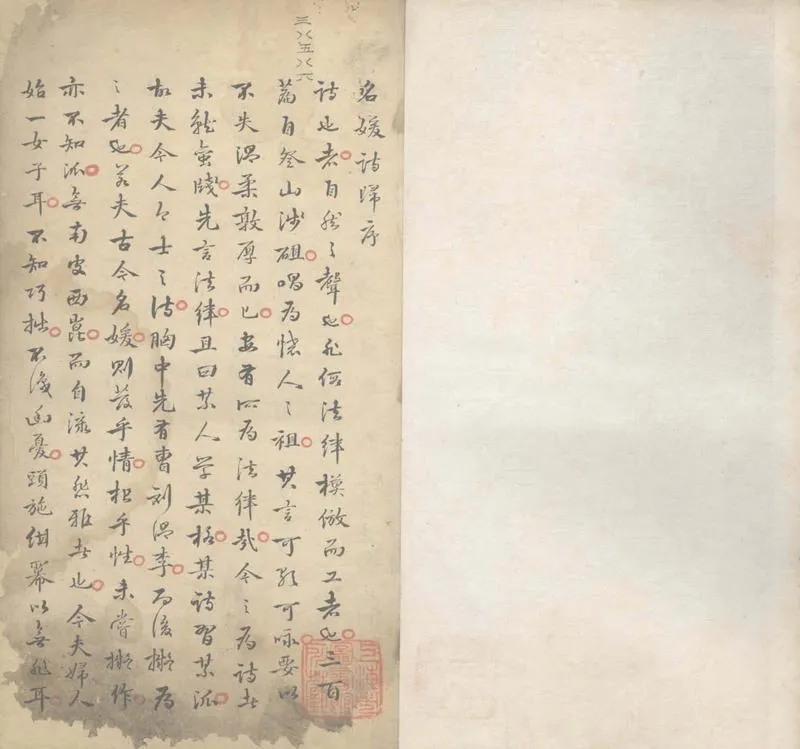 三八五八六
名媛詩歸序
詩也者自然之聲也非假法律模倣而工者也三百
篇自登山涉砠唱為懷人之祖其言可歌可咏要以
不失溫柔敦厚而已安有所為法律哉今之為詩者
未就蠻牋先言法律且曰某人學某格某詩習某派
故夫今人今士之詩胸中先有曹劉溫李而後擬為
之者也若夫古今名媛則發乎情根乎性未嘗擬作
亦不知派無南皮西崑而自流其悲雅者也今夫婦人
始一女子耳不知巧拙不幽憂頭施紺冪以無非耳